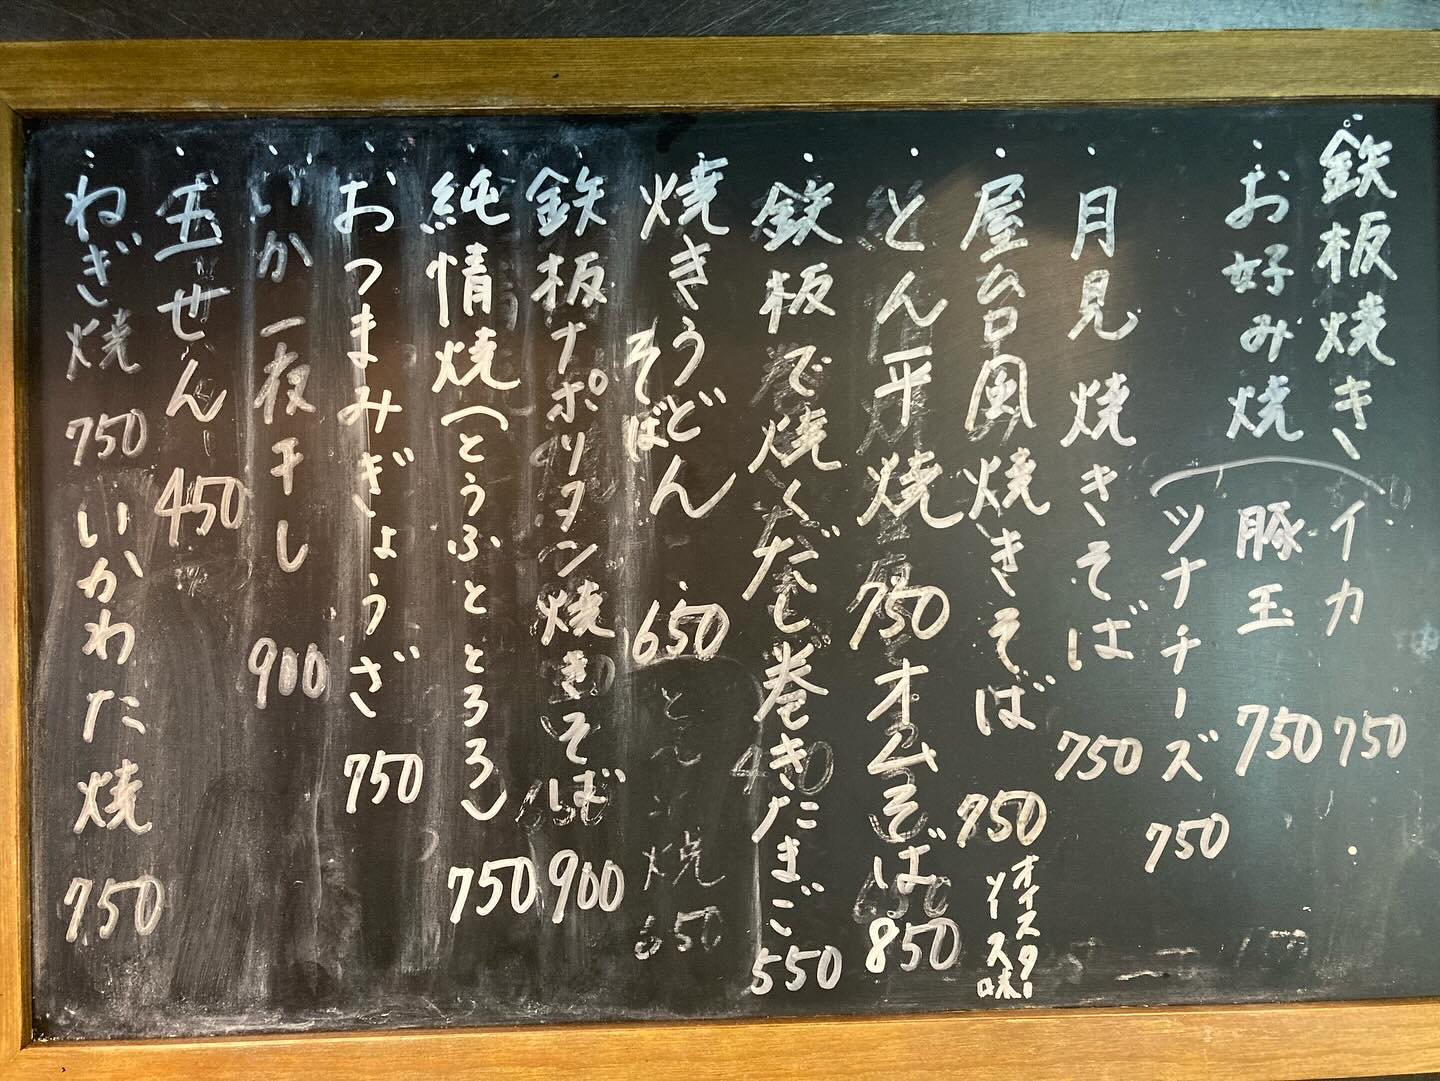 鉄板焼き
お好み焼
イカ 750
豚玉 750
ツナチーズ 750
月見焼きそば 750
屋台風焼きそば 750
オイスター
ソース味
とん平焼 750
オムそば 850
鉄板で焼くだし巻きたまご 550
焼きうどん 650
そば
鉄板ナポリタン焼きそば 900
純情焼(とうふととろろ) 750
おつまみぎょうざ 750
いか一夜干し 900
玉せん 450
ねぎ焼 750
いかわた焼 750